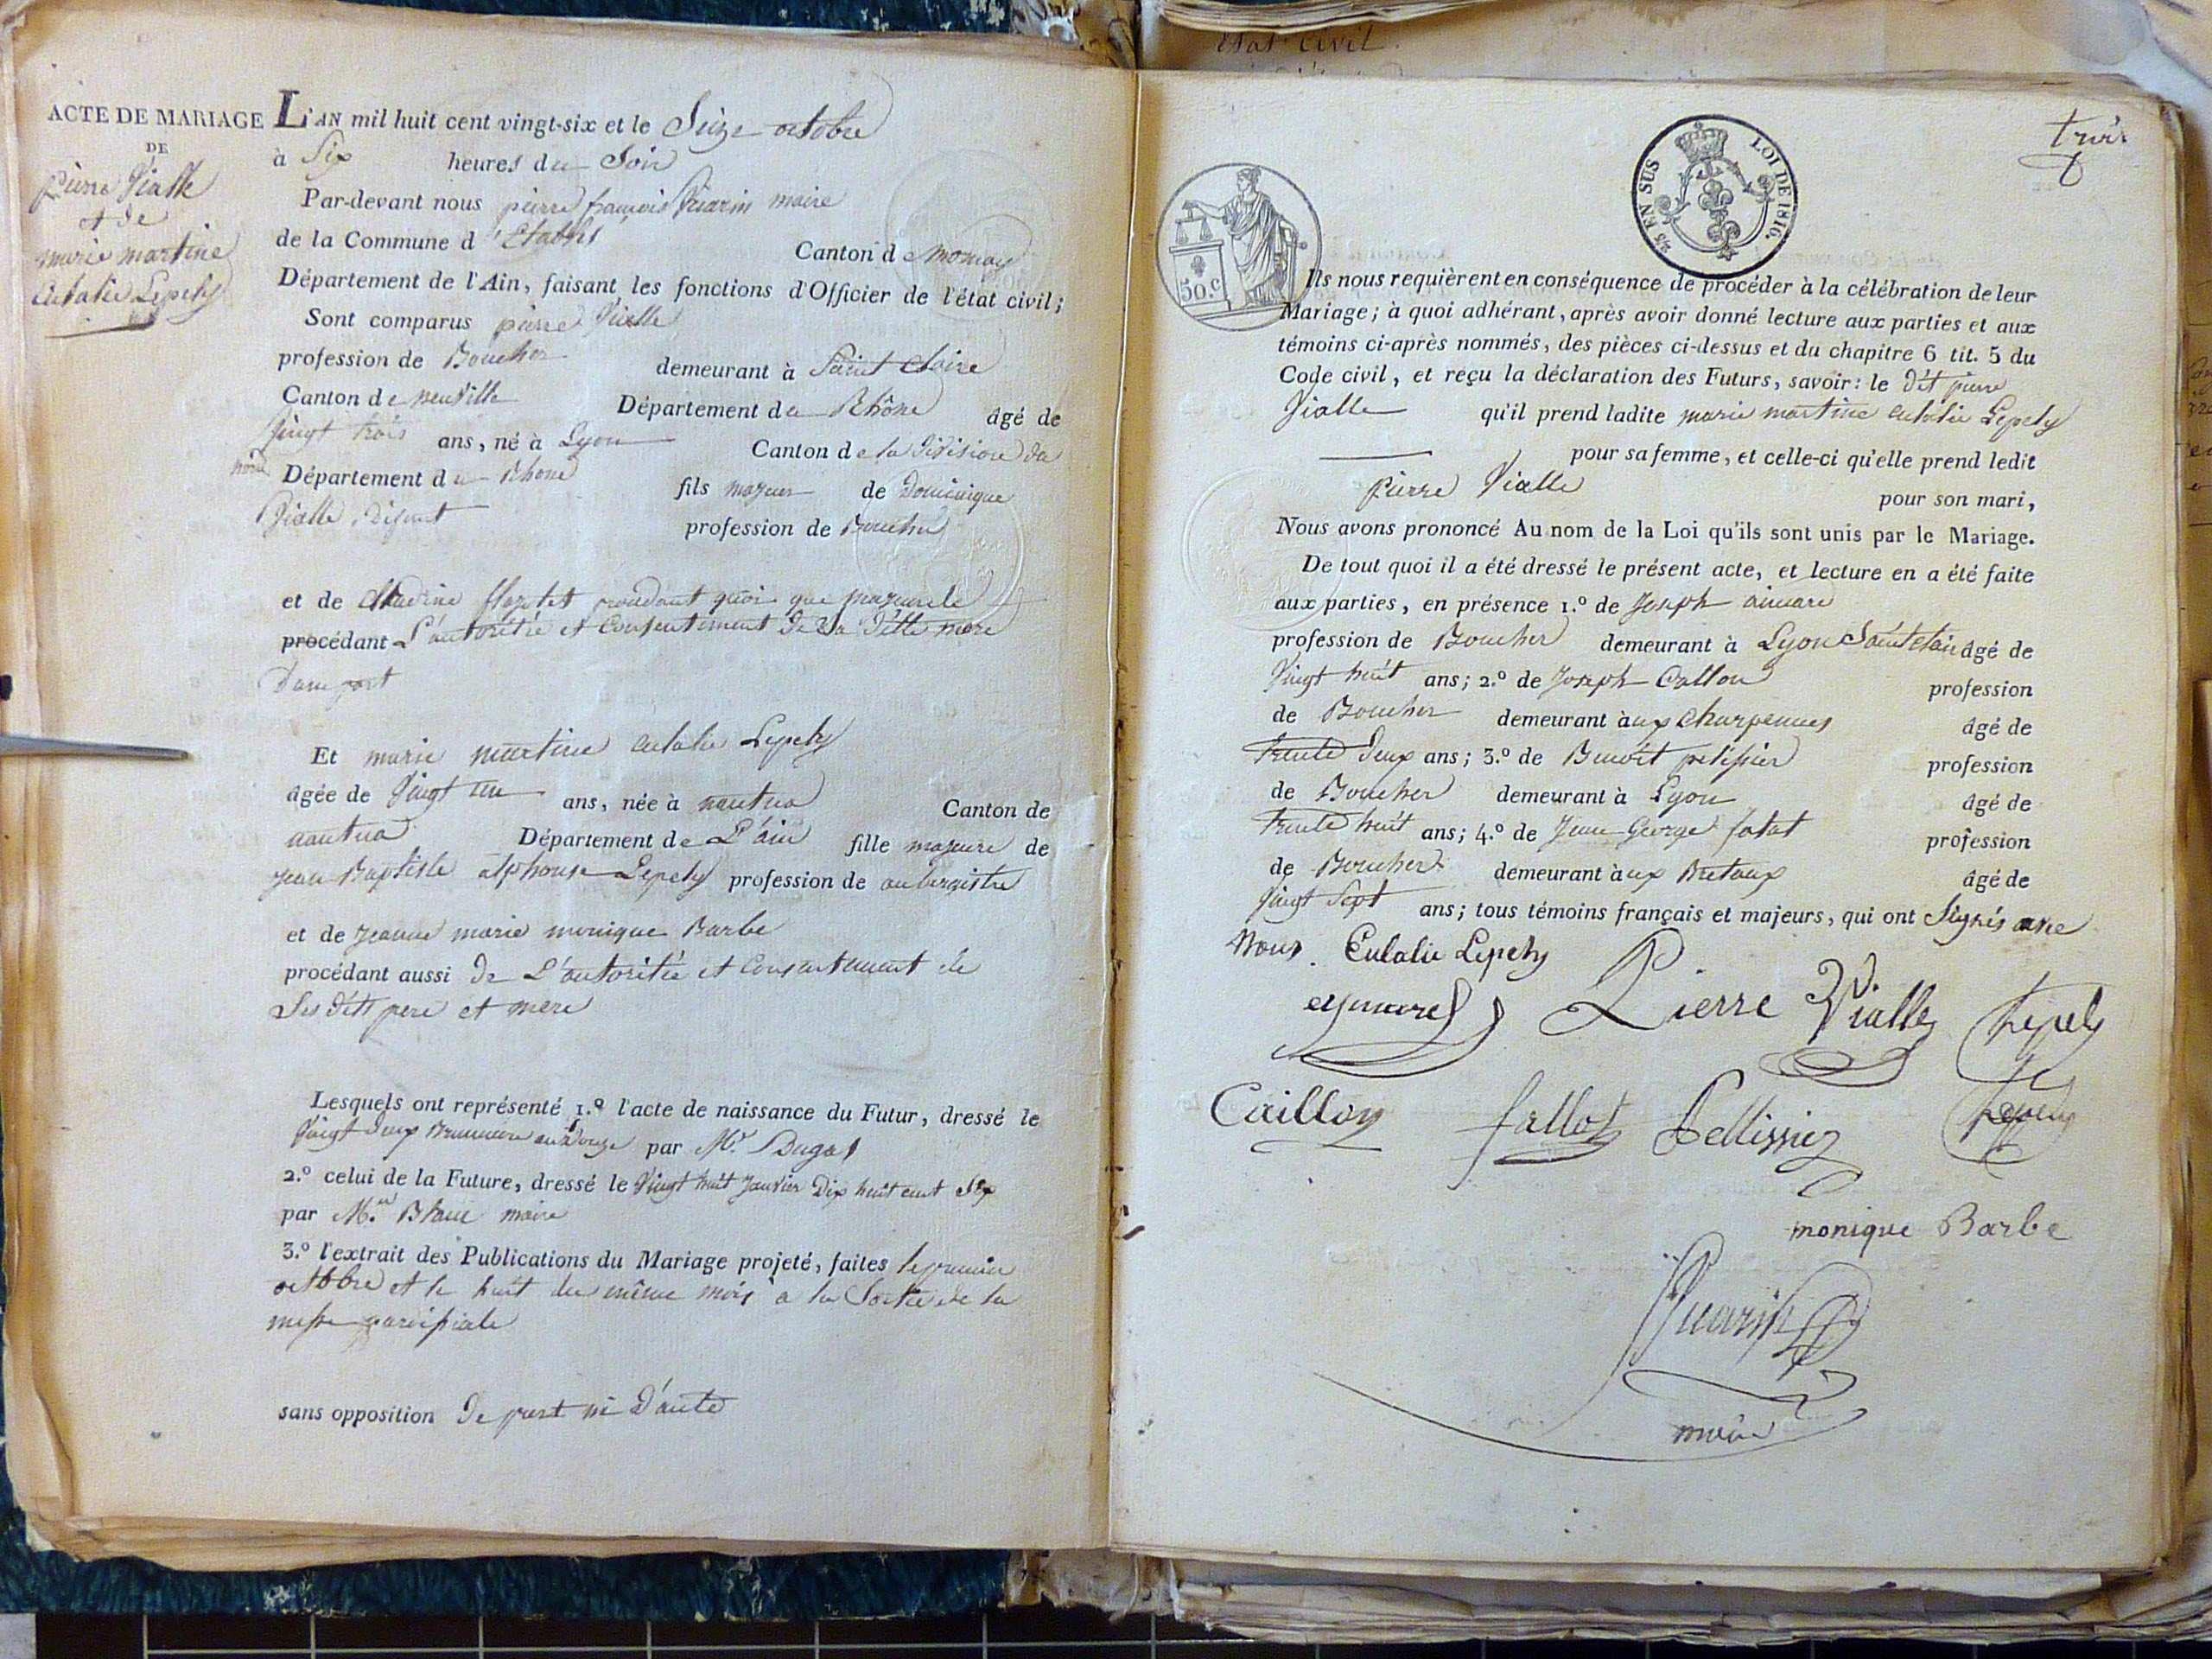 état civil
ACTE DE MARIAGE
DE
pierre Vialle
et de
marie martine
eulalie Lepely
L'AN mil huit cent vingt-six et le Seize octobre
à Six heures du Soir
Par-devant nous pierre françois maire
de la Commune d'Etables Canton de
Département de l'Ain, faisant les fonctions d'Officier de l'état civil;
Sont comparus pierre Vialle
profession de Boucher demeurant à Saint Claire
Canton de neuville Département du Rhône âgé de
Vingt trois ans, né à Lyon Canton de la Division du
nord Département du Rhone fils majeur de Dominique
Vialle, Défunt profession de Boucher
et de quoi que majeur de
procédant L'autoritée et Consentement de Sa Ditte mere
D'une part
Et marie martine eulalie Lepely
âgée de Vingt un ans, née à nantua Canton de
nantua Département de L'ain fille majeure de
jean Baptiste alphonse Lepely profession de aubergiste
et de jeanne marie monique Barbe
procédant aussi De L'autoritée et Consentement de
Ses Dits pere et mere
Lesquels ont représenté 1.º l'acte de naissance du Futur, dressé le
Vingt Deux Brumaire an Douze par Mr.
2.º celui de la Future, dressé le Vingt huit Janvier Dix huit cent Six
par M.r Blanc maire
3.º l'extrait des Publications du Mariage projeté, faites le premier
octobre et le huit du même mois à la Sortie de la
messe paroissiale
sans opposition De part ni D'autre
trois
25 EN SUS LOI DE 1816.
50.c
Ils nous requièrent en conséquence de procéder à la célébration de leur
Mariage; à quoi adhérant, après avoir donné lecture aux parties et aux
témoins ci-après nommés, des pièces ci-dessus et du chapitre 6 tit. 5 du
Code civil, et reçu la déclaration des Futurs, savoir: le dit pierre
Vialle qu'il prend ladite marie martine eulalie Lepely
pour sa femme, et celle-ci qu'elle prend ledit
pierre Vialle pour son mari,
Nous avons prononcé Au nom de la Loi qu'ils sont unis par le Mariage.
De tout quoi il a été dressé le présent acte, et lecture en a été faite
aux parties, en présence 1.º de Joseph aimare
profession de Boucher demeurant à Lyon Saint Clair âgé de
Vingt huit ans; 2.º de Joseph Callon profession
de Boucher demeurant aux Charpennes âgé de
trente Deux ans; 3.º de Benoit pelissier profession
de Boucher demeurant à Lyon âgé de
trente huit ans; 4.º de Jean George fatat profession
de Boucher demeurant aux Brotaux âgé de
Vingt Sept ans; tous témoins français et majeurs, qui ont Signés avec
Nous. Eulalie Lepely
eymare Pierre Vialle Lepely
Caillon fallot Pellissier Lepely
monique Barbe
maire